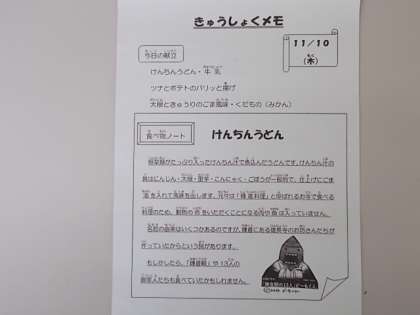 きゅうしょくメモ
11/10
(木)
今日の献立
けんちんうどん・牛乳
ツナとポテトのパリッと揚げ
大根ときゅうりのごま風味・くだもの(みかん)
食べ物ノート
けんちんうどん
根菜類がたっぷり入ったけんちん汁で煮込んだうどんです。けんちん汁の
具はにんじん・大根・里芋・こんにゃく・ごぼうが一般的で、仕上げにごま
油を入れて風味を出します。元々は「精進料理」と呼ばれるお寺で食べる
料理のため、動物の命をいただくことになる肉や魚は入っていません。
名前の由来はいくつかあるのですが、鎌倉にある建長寺のお坊さんたちが
作っていたからという説があります。
もしかしたら、「鎌倉殿」や13人の
御家人たちも食べていたかもしれません。